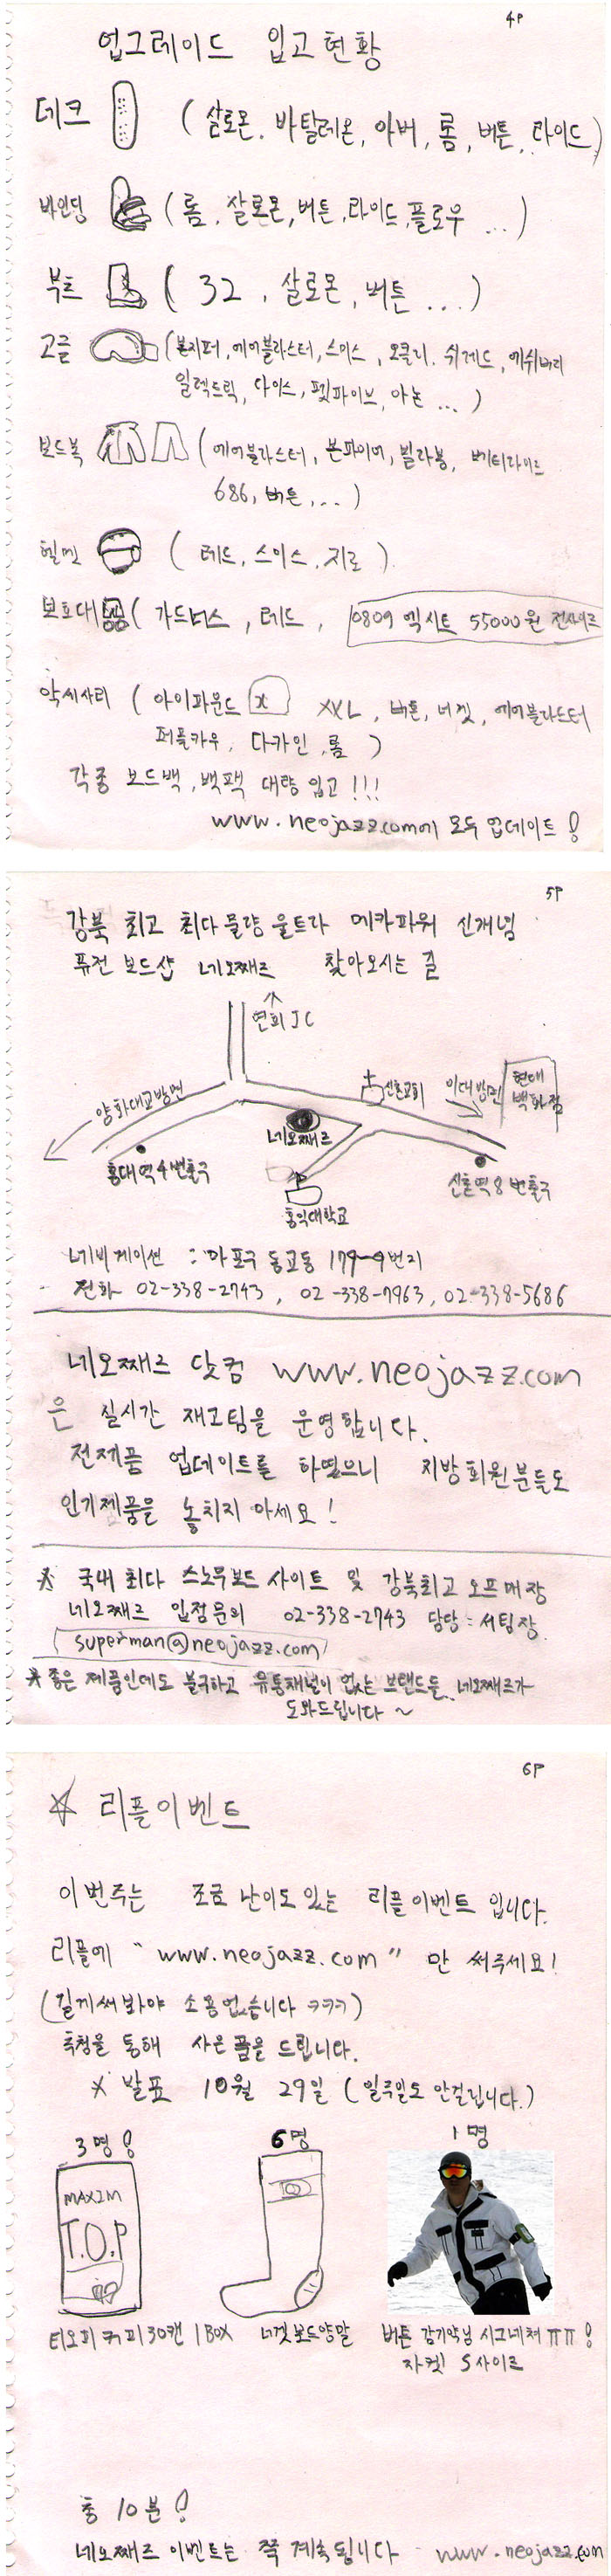 4P
업그레이드 입고현황
데크 (살로몬, 바탈레온, 아버, 롬, 버튼, 라이드)
바인딩 (롬, 살로몬, 버튼, 라이드, 플로우 ...)
부츠 (32, 살로몬, 버튼 ...)
고글 (본지퍼, 에어블라스터, 스미스, 오클리, 쉬레드, 애쉬버리
일렉트릭, 다이스, 핏파이브, 아논 ...)
보드복 (에어블라스터, 본파이어, 빌라봉,
686, 버튼, ...)
헬멧 (레드, 스미스, 지로)
보호대 (가드너스, 레드, 0809 엑시트 55000원 전사이즈
악세사리 (아이파운드 x XXL, 버튼, 너겟, 에어블라스터
퍼플카우, 다카인, 롬)
각종 보드백, 백팩 대량 입고!!!
www.neojazz.com에 모두 업데이트!
5P
강북 최고 최다물량 울트라 메카파워 신개념
퓨전 보드샵 네오째즈 찾아오시는 길
연희JC
양화대교방면
신촌교회
이대방면
현대
백화점
네오째즈
홍대역4번출구
신촌역8번출구
홍익대학교
네비게이션 : 마포구 동교동 179-9번지
전화 02-338-2743, 02-338-7963, 02-338-5686
네오째즈 닷컴 www.neojazz.com
은 실시간 재고팀을 운영합니다.
전제품 업데이트를 하였으니 지방회원분들도
인기제품을 놓치지 마세요!
* 국내 최다 스노우보드 사이트 및 강북최고 오프매장
네오째즈 입점문의 02-338-2743 담당:서팀장
superman@neojazz.com
* 좋은 제품인데도 불구하고 유통채널이 없는 브랜드들 네오째즈가
도와드립니다~
6P
☆ 리플이벤트
이번주는 조금 난이도있는 리플이벤트 입니다.
리플에 "www.neojazz.com" 만 써주세요!
(길게써봐야 소용없습니다 ㅋㅋㅋ)
추첨을 통해 사은품을 드립니다.
* 발표 10월 29일 (일주일도 안걸립니다.)
3명!
6명
1명
MAXIM
T.O.P
티오피 커피30캔 1BOX
너겟보드양말
버튼 감기약님 시그네쳐 ㅠㅠ!
자켓! S사이즈
총 10분!
네오째즈 이벤트는 쭉 계속됩니다 www.neojazz.com